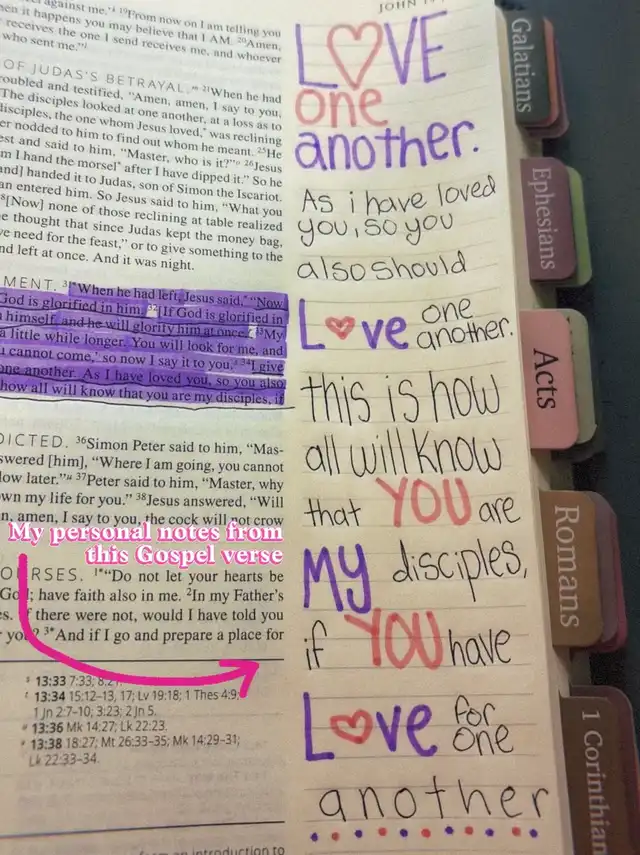 JOHN
against me.’ ¹⁹From now on I am telling you
en it happens you may believe that I AM. ²⁰Amen,
receives the one I send receives me, and whoever
who sent me.”
OF JUDAS'S BETRAYAL. ²¹When he had
oubled and testified, “Amen, amen, I say to you,
The disciples looked at one another, at a loss as to
disciples, the one whom Jesus loved, was reclining
er nodded to him to find out whom he meant. ²⁵He
est and said to him, “Master, who is it?” ²⁶Jesus
m I hand the morsel after I have dipped it.” So he
and] handed it to Judas, son of Simon the Iscariot.
an entered him. So Jesus said to him, “What you
⁸[Now] none of those reclining at table realized
e thought that since Judas kept the money bag,
ve need for the feast,” or to give something to the
nd left at once. And it was night.
MENT. ³¹*When he had left, Jesus said, “Now
God is glorified in him. ³²[If God is glorified in
himself, and he will glorify him at once. ³³My
a little while longer. You will look for me, and
u cannot come,’ so now I say it to you. ³⁴I give
one another. As I have loved you, so you also
how all will know that you are my disciples, if
DICTED. ³⁶Simon Peter said to him, “Mas-
swered [him], “Where I am going, you cannot
low later.” ³⁷Peter said to him, “Master, why
own my life for you.” ³⁸Jesus answered, “Will
n, amen, I say to you, the cock will not crow
My personal notes from
this Gospel verse
OURSES. ¹*“Do not let your hearts be
God; have faith also in me. ²In my Father's
es. If there were not, would I have told you
you? ³*And if I go and prepare a place for
13:33 7:33; 8:21.
13:34 15:12–13, 17; Lv 19:18; 1 Thes 4:9;
1 Jn 2:7–10; 3:23; 2 Jn 5.
13:36 Mk 14:27; Lk 22:23.
13:38 18:27; Mt 26:33–35; Mk 14:29–31;
Lk 22:33–34.
from an introduction to
LOVE
one
another.
As i have loved
you, so you
also should
Love one
another.
this is how
all will know
that YOU are
MY disciples,
if YOU have
Love for
one
another
Galatians
Ephesians
Acts
Romans
1 Corinthian